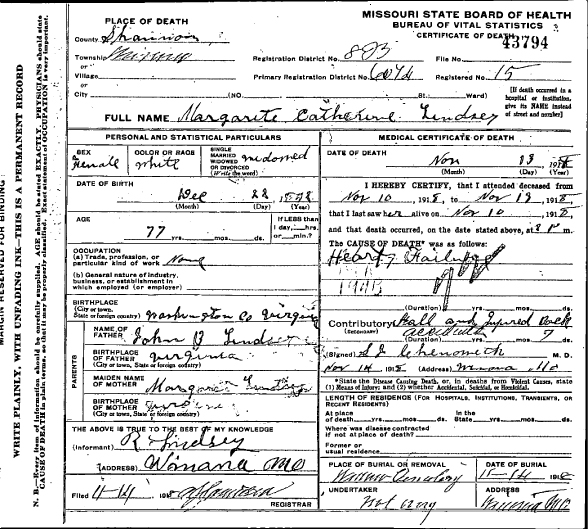 MISSOURI STATE BOARD OF HEALTH
BUREAU OF VITAL STATISTICS
CERTIFICATE OF DEATH
43794
PLACE OF DEATH
County Shannon
Township
or
Village
or
City (NO. St.; Ward)
Registration District No. 803 File No.
Primary Registration District No. 6074 Registered No. 15
[If death occurred in a
hospital or institution,
give its NAME instead
of street and number]
FULL NAME Margarite Catherine Lindsey
PERSONAL AND STATISTICAL PARTICULARS
SEX Female
COLOR OR RACE White
SINGLE
MARRIED
WIDOWED
OR DIVORCED
(Write the word)
widowed
DATE OF BIRTH
Dec 22
(Month) (Day) (Year)
AGE
77 yrs. mos. ds.
If LESS than
1 day, hrs.
or min.?
OCCUPATION
(a) Trade, profession, or
particular kind of work None
(b) General nature of industry,
business, or establishment in
which employed (or employer)
BIRTHPLACE
(City or town,
State or foreign country) Washington Co Virginia
PARENTS
NAME OF
FATHER John Lindsey
BIRTHPLACE
OF FATHER Virginia
(City or town, State or foreign country)
MAIDEN NAME
OF MOTHER
BIRTHPLACE
OF MOTHER
(City or town, State or foreign country)
THE ABOVE IS TRUE TO THE BEST OF MY KNOWLEDGE
(Informant) R Lindsey
(ADDRESS) Winona Mo
Filed 11-14 191
REGISTRAR
MEDICAL CERTIFICATE OF DEATH
DATE OF DEATH
Nov 13 191
(Month) (Day) (Year)
I HEREBY CERTIFY, that I attended deceased from
Nov 10, 1918, to Nov 13, 1918
that I last saw her alive on Nov 10, 1918
and that death occurred, on the date stated above, at m.
The CAUSE OF DEATH* was as follows:
Heart Failure
(Duration) yrs. mos. ds.
Contributory Fall and Injured Back
(SECONDARY) accident
(Duration) yrs. mos. ds.
(Signed) Chenoweth M. D.
Nov 14 191 (Address) Winona Mo
*State the Disease Causing Death, or, in deaths from Violent Causes, state
(1) Means of Injury; and (2) whether Accidental, Suicidal, or Homicidal.
LENGTH OF RESIDENCE (For Hospitals, Institutions, Transients, or
Recent Residents)
At place
of death yrs. mos. ds.
In the
State yrs. mos. ds.
Where was disease contracted
if not at place of death?
Former or
usual residence
PLACE OF BURIAL OR REMOVAL
Cemetery
DATE OF BURIAL
11-14 1918
UNDERTAKER
not any
ADDRESS
Winona Mo
MARGIN RESERVED FOR BINDING
WRITE PLAINLY, WITH UNFADING INK—THIS IS A PERMANENT RECORD
N. B.—Every item of information should be carefully supplied. AGE should be stated EXACTLY. PHYSICIANS should state
CAUSE OF DEATH in plain terms, so that it may be properly classified. Exact statement of OCCUPATION is very important.